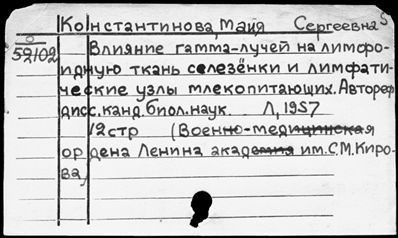 Константинова, Майя Сергеевна
52102 Влияние гамма-лучей на лимфо-
идную ткань селезёнки и лимфати-
ческие узлы млекопитающих. Автореф
дисс. канд. биол. наук. Л, 1957
12стр (Военно-медицинская
ордена Ленина академия им. С.М. Киро-
ва)